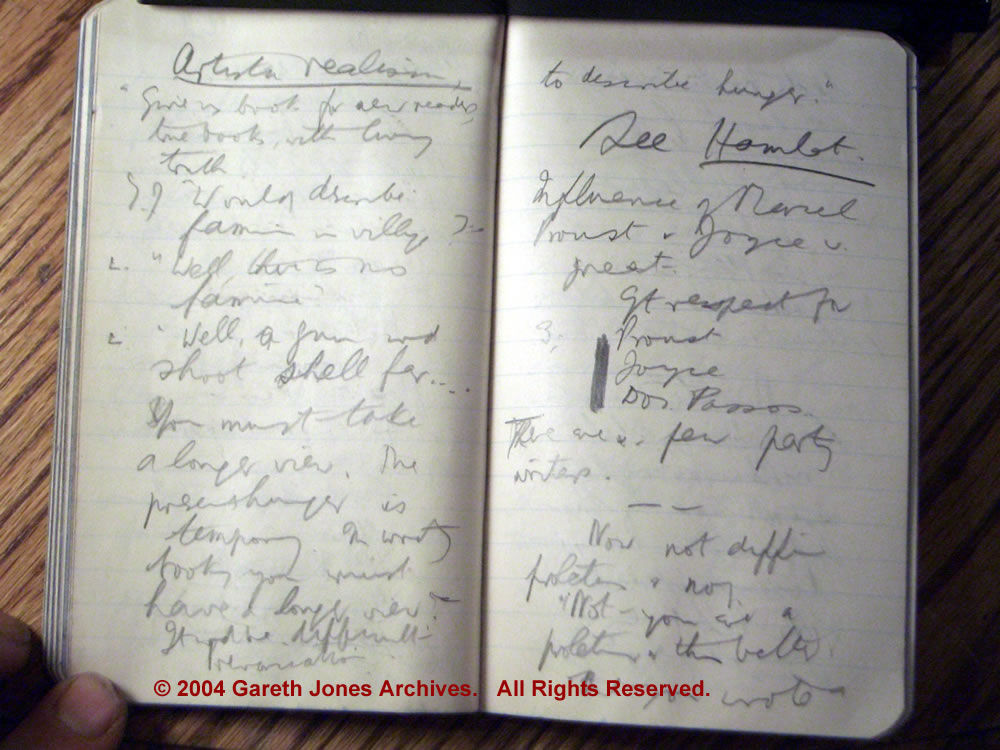 Artistic realism.
"Give us book for new readers,
true book, with living
truth
Would describe
famine in village?
2. "Well, there is no
famine"
2. "Well, a gun
shoot shell far....
You must take
a longer view. The
present hunger is
temporary In writing
books you must
have a longer view."
It would be difficult
to describe hunger."
See Hamlet.
Influence of Marcel
Proust & Joyce v.
great.
Gt respect for
3. Proust
Joyce
Dos. Passos.
There are v. few party
writers.
— —
Now not
"Not - you are a
better.
you wrote
© 2004 Gareth Jones Archives. All Rights Reserved.